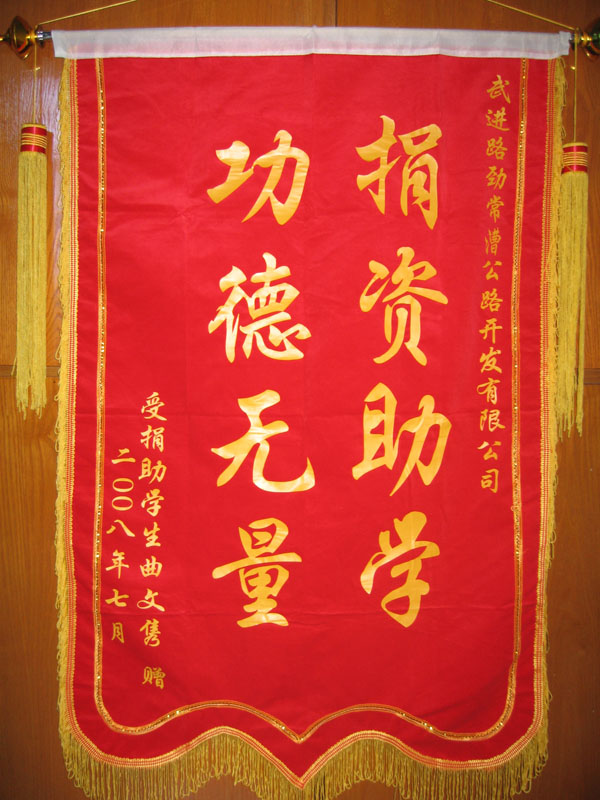 武进路劲常漕公路开发有限公司
捐资助学
功德无量
受捐助学生曲文隽 赠
二〇〇八年七月